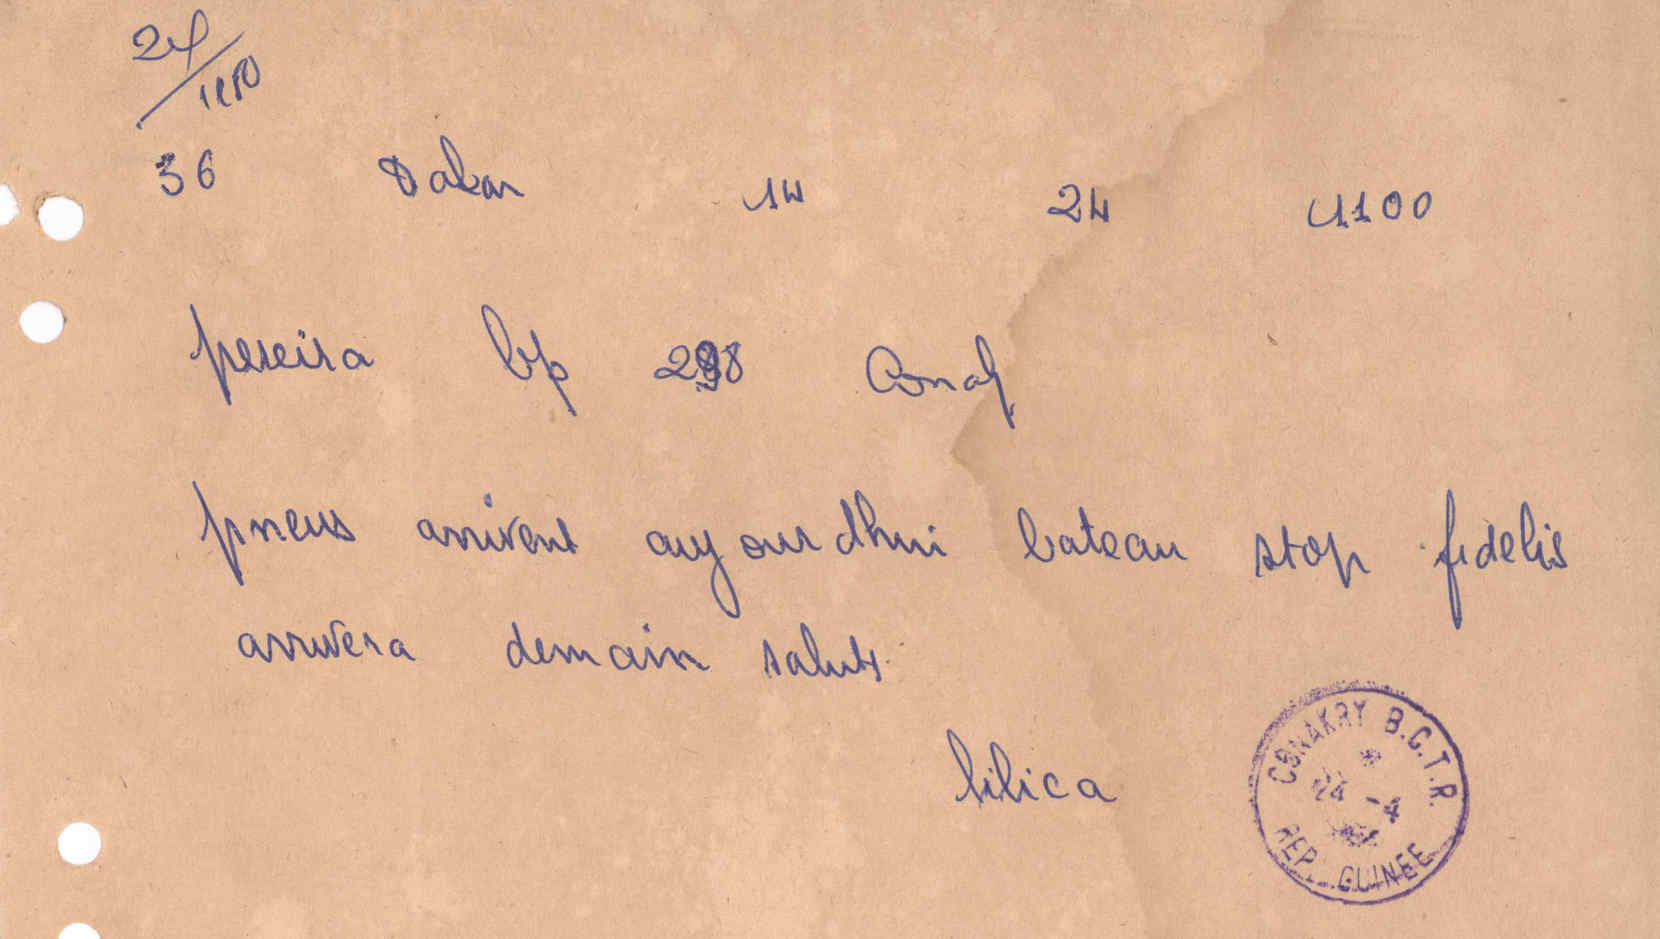 24/1250
36 Dakar 14 24 1100
pereira bp 298 Conaky
pneus arrivent aujourdhui bateau stop fidelis
arrivera demain saluts
lilica
CONAKRY B.C.T.R.
24 -4
REP. GUINEE